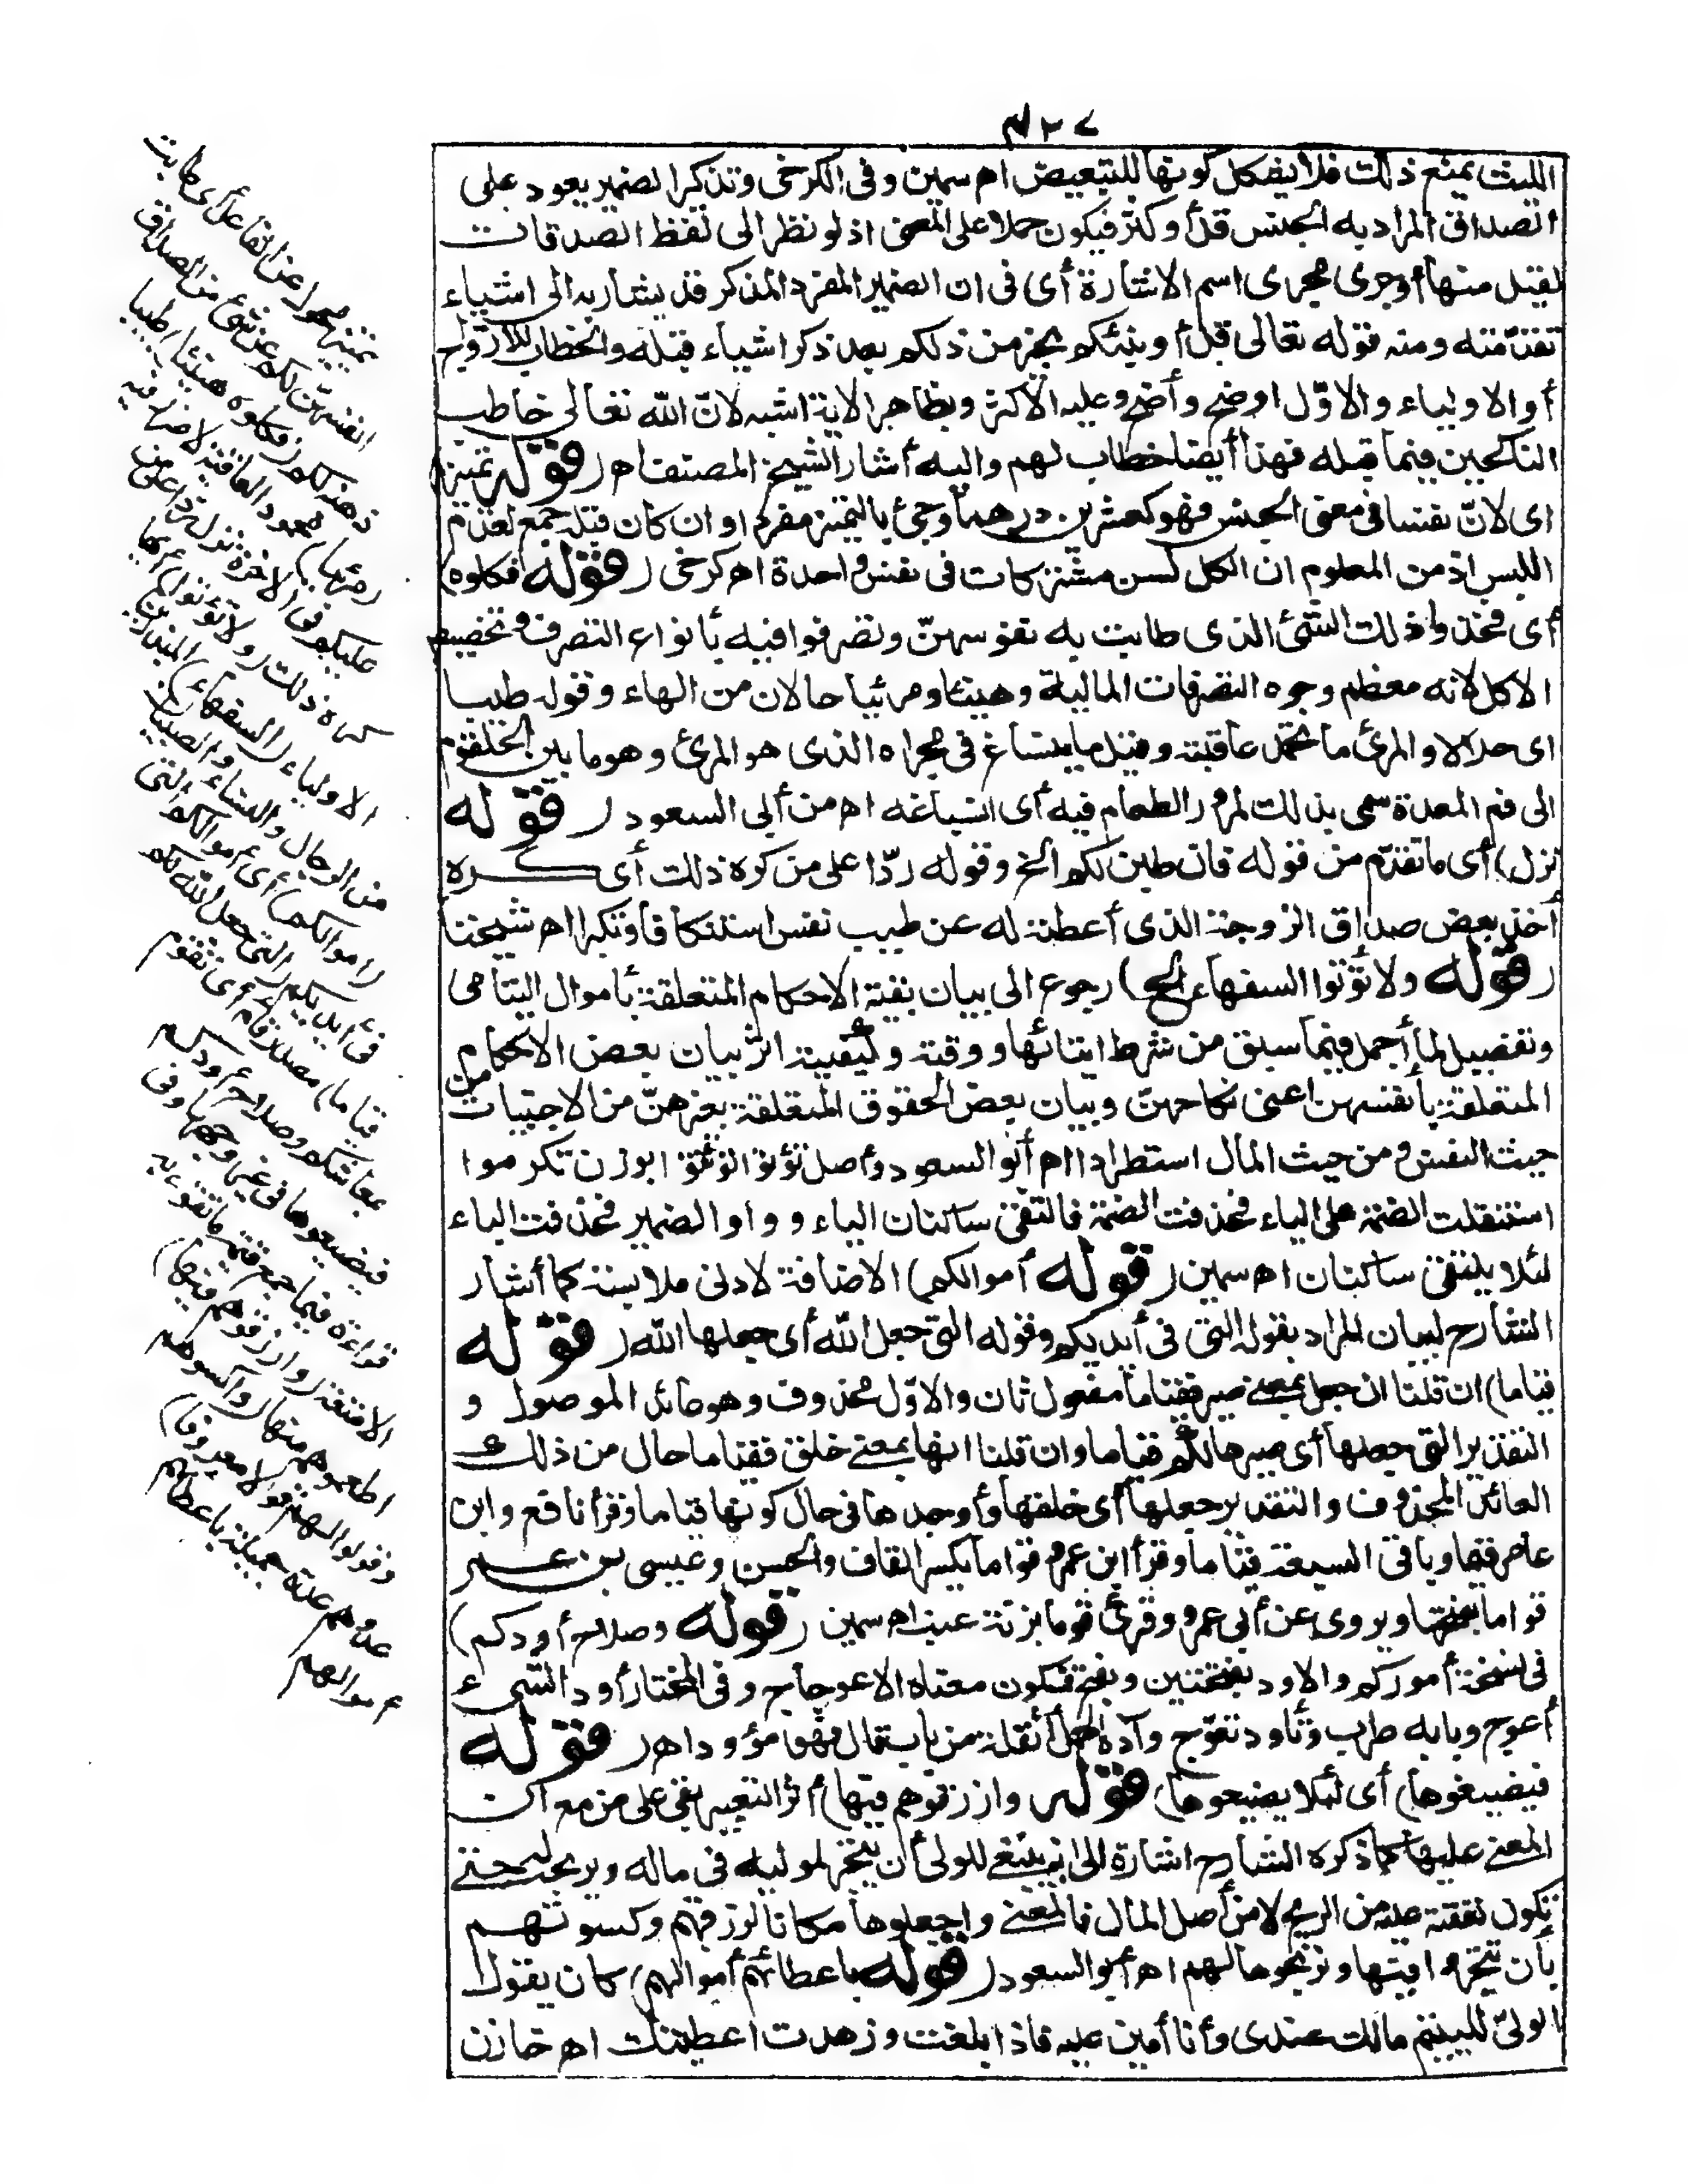 ٤٢٧
الليث يمنع ذلك فلا يشكل كونها للتبعيض اه سمين وفي الكرخي وتذكير الضمير يعود على
الصداق المراد به الجنس قل أو كثر فيكون حملا على المعنى اذ لو نظر الى لفظ الصدقات
لقيل منها أو جرى مجرى اسم الاشارة أي في ان الضمير المفرد المذكر قد يشار به الى اشياء
تقدمته ومنه قوله تعالى قل أونبئكم بخير من ذلكم بعد ذكر اشياء قبله والخطاب للازواج
أو الاولياء والاول اوضح وأصح وعليه الاكثر وبظاهر الاية اشبه لانّ الله تعالى خاطب
الناكحين فيما قبله فهذا أيضا خطاب لهم واليه أشار الشيخ المصنف اه (قوله تمييز)
اى لانّ نفسا في معنى الجنس فهو كعشرين درهما وجئ بالتمييز مفردا وان كان قبله جمع لعدم
اللبس اذ من المعلوم ان الكل لسن مشتركات في نفس واحدة اه كرخى (قوله فكلوه)
أي فخذوا ذلك الشئ الذى طابت به نفوسهنّ وتصرفوا فيه بأنواع التصرف وتخصيص
الاكل لانه معظم وجوه التصرفات المالية وهنيئا ومريئا حالان من الهاء وقوله طيبا
اى حلالا والمرئ ما تحمد عاقبته وقيل ما ينساغ في مجراه الذى هو المرئ وهو ما بين الحلقوم
الى فم المعدة سمى بذلك لمرور الطعام فيه أى انسياغه اه من أبى السعود (قوله
نزل) أى ما تقدّم من قوله فان طبن لكم الخ وقوله ردّا على من كره ذلك أى كره
أخذ بعض صداق الزوجة الذى أعطته له عن طيب نفس استنكافا وتكبرا اه شيخنا
(قوله ولا تؤتوا السفهاء الخ) رجوع الى بيان بقية الاحكام المتعلقة بأموال اليتامى
وتفصيل لما أجمل فيما سبق من شرط ايتائها ووقته وكيفيته اثر بيان بعض الاحكام
المتعلقة بأنفسهن اعنى نكاحهنّ وبيان بعض الحقوق المتعلقة بغيرهنّ من الاجنبيات من
حيث النفس ومن حيث المال استطرادا اه أبو السعود وأصل تؤتوا تؤتيوا بوزن تكرموا
استثقلت الضمة على الياء فحذفت الضمة فالتقى ساكنان الياء وواو الضمير فحذفت الياء
لئلا يلتقى ساكنان اه سمين (قوله أموالكم) الاضافة لادنى ملابسة كما أشار
الشارح لبيان المراد بقوله التى في أيديكم وقوله التى جعل الله أى جعلها الله (قوله
قياما) ان قلنا ان جعل بمعنى صير فقياما مفعول ثان والاوّل محذوف وهو عائد الموصول و
التقدير التى جعلها أى صيرها لكم قياما وان قلنا انها بمعنى خلق فقياما حال من ذلك
العائد المحذوف والتقدير جعلها أى خلقها وأوجدها في حال كونها قياما وقرأ نافع وابن
عامر قيما وباقى السبعة قياما وقرأ ابن عمر قواما بكسر القاف والحسن وعيسى بن عمر
قواما بفتحها ويروى عن أبى عمرو وقرئ قوما بزنة عنب اه سمين (قوله وصلاح أودكم)
في نسخة أموركم والاود بفتحتين وبفتح فسكون معناه الاعوجاج وفي المختار أود الشىء
أعوج وبابه طرب وتأود تعوّج وآده الحمل أثقله من باب قال فهو مؤود اه (قوله
فيضيعوها) أى لئلا يضيعوها (قوله وارزقوهم فيها) أثر التعبير بفى على من مع ان
المعنى عليها كما ذكره الشارح اشارة الى انه ينبغى للولى أن يتجر لموليه في ماله ويربحه له حتى
تكون نفقته عليه من الربح لا من أصل المال فالمعنى واجعلوها مكانا لرزقهم وكسوتهم
بأن تتجروا فيها وتربحوها لهم اه أبو السعود (قوله باعطائهم أموالهم) كان يقول
الولىّ لليتيم مالك عندى وأنا أمين عليه فاذا بلغت ورشدت اعطيتك اه خازن
تمييز محول عن الفاعل أى طابت
انفسهنّ لكم عن شئ من الصداق
فوهبنه لكم (فكلوه هنيئا) طيبا
(مريئا) محمود العاقبة لا ضرر فيه
عليكم في الآخرة نزل ردّا على من
كره ذلك (ولا تؤتوا) أيها
الاولياء (السفهاء) المبذرين
من الرجال والنساء والصبيان
(أموالكم) أى أموالكم التى
في أيديكم (التى جعل الله لكم
قياما) مصدر قام أى تقوم
بمعاشكم وصلاح أودكم
فيضيعوها في غير وجهها وفى
قراءة قيما جمع قيمة ما تقوم به
الامتعة (وارزقوهم فيها)
اطعموهم منها (واكسوهم
وقولوا لهم قولا معروفا)
عدوهم عدة جميلة باعطائهم
أموالهم